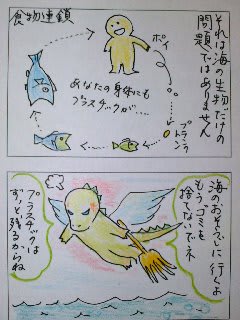 それは海の生物だけの
問題ではありません
食物連鎖
ポイ
あなたの身体にも
プラスチックが…
プランクトン
海のおそうじに行くよ
もう、ゴミを
捨てないでネ
プラスチックは
ずっと残るからね